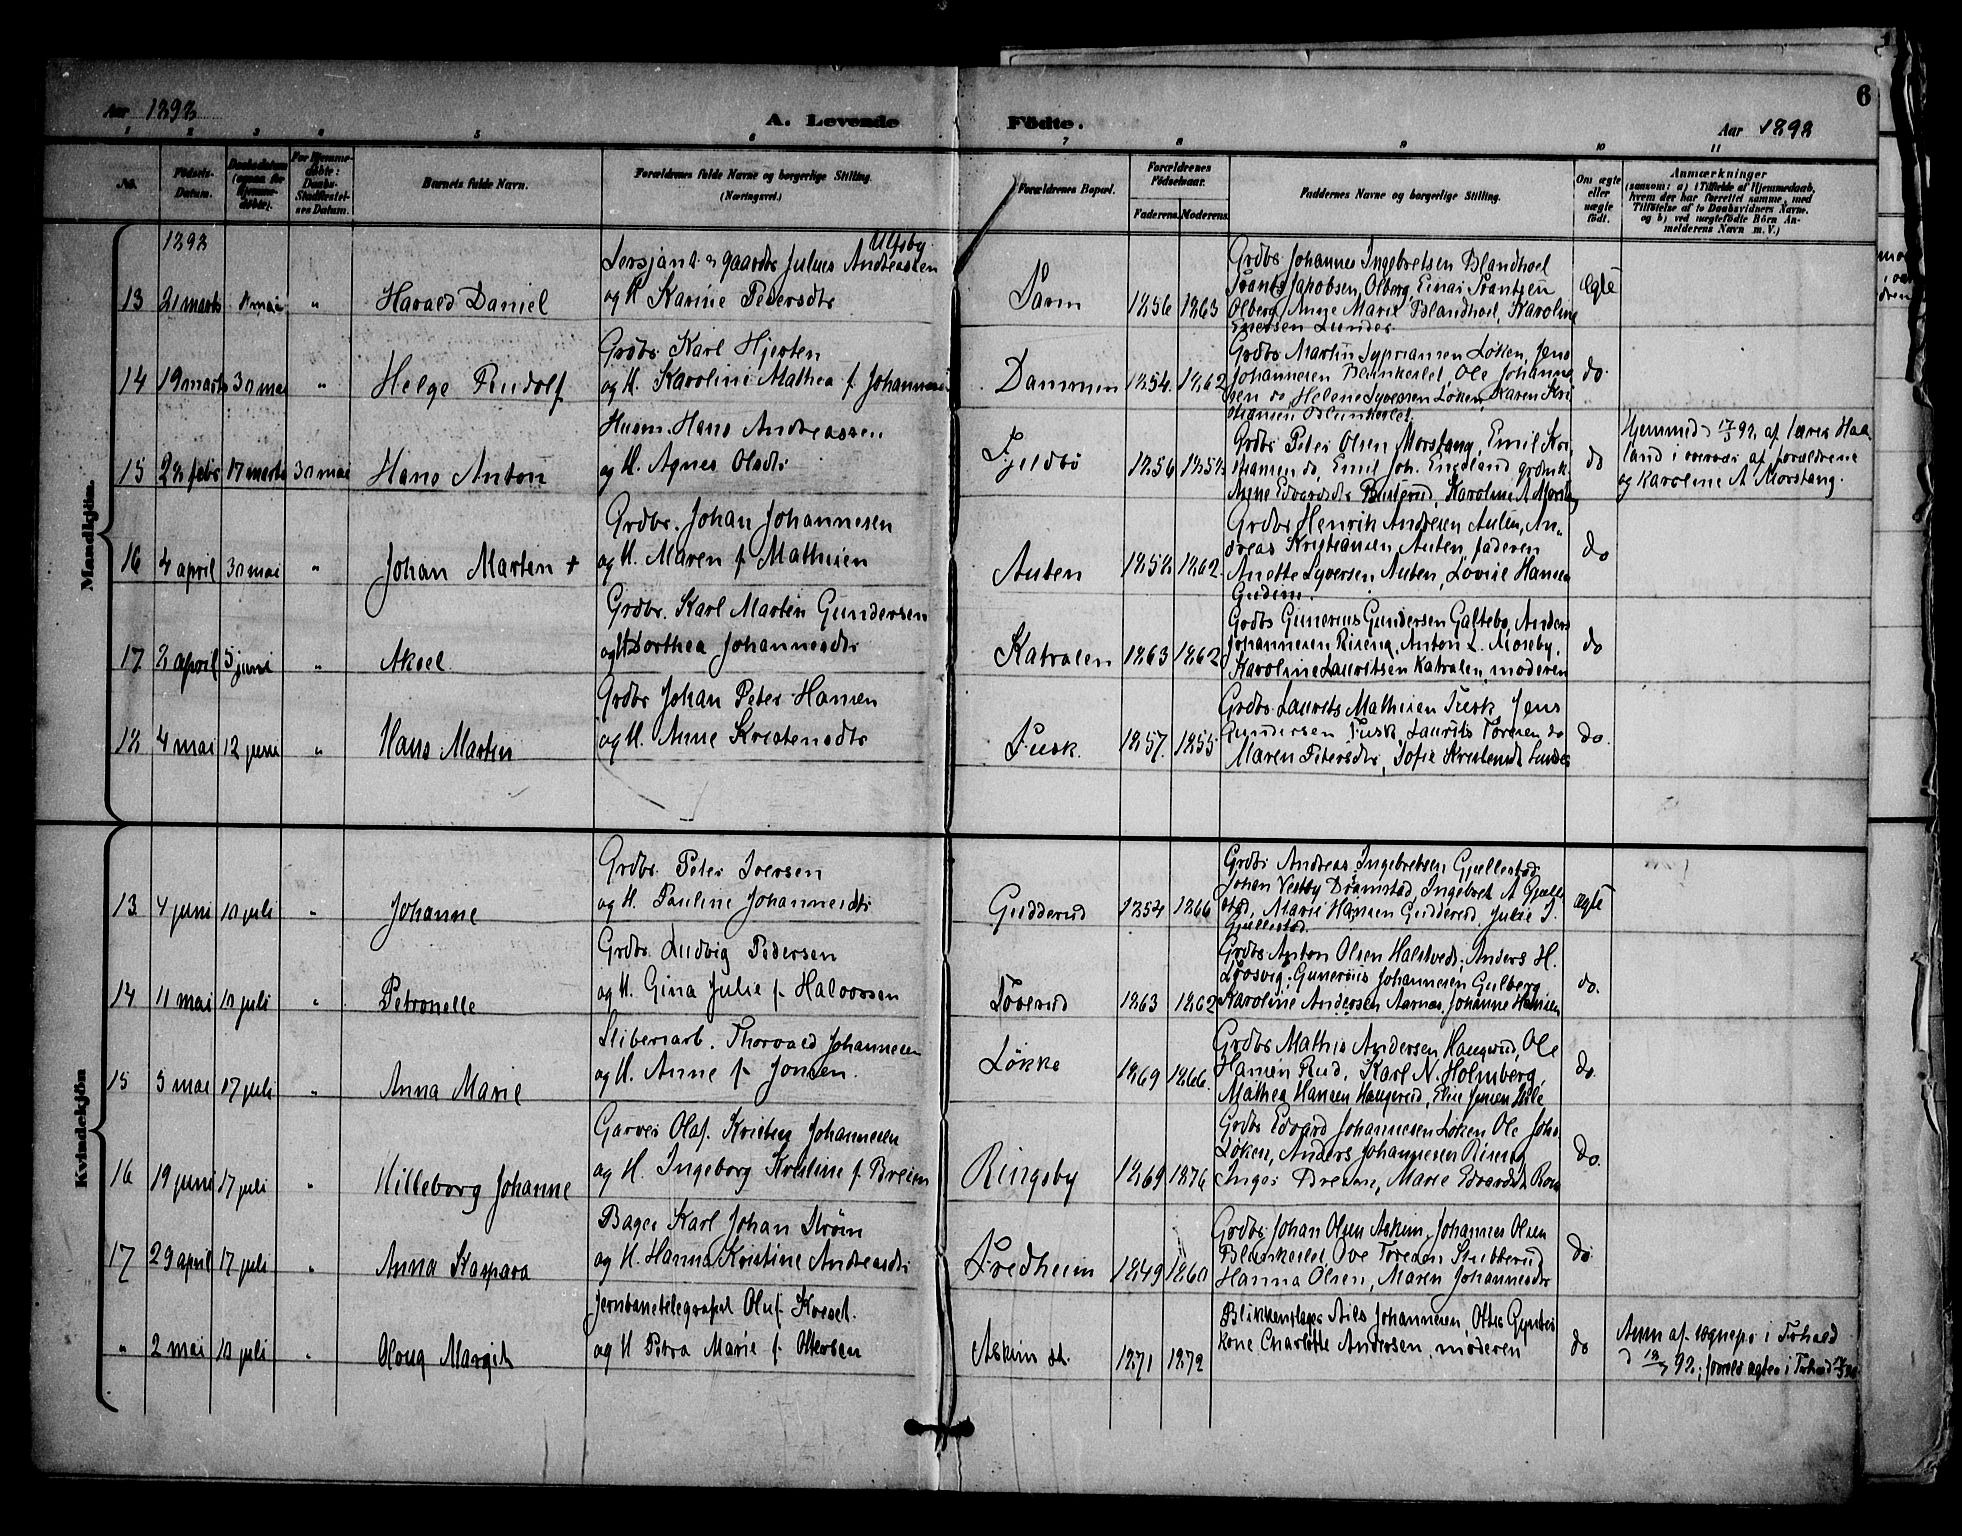 6
Aar 1892
A. Levende Födte.
Aar 1892
1 2 3 4 5 6 7 8 9 10 11
No.
Födsels-Datum.
Daabsdatum (ogsaa for Hjemmedöbte).
For Hjemmedöbte: Daabs-Stadfæstelses Datum.
Barnets fulde Navn.
Forældrenes fulde Navne og borgerlige Stilling. (Næringsvei.)
Forældrenes Bopæl.
Forældrenes Födselsaar.
Faderens. Moderens.
Faddernes Navne og borgerlige Stilling.
Om ægte eller uægte födt.
Anmærkninger
(saasom: a) i Tilfælde af Hjemmedaab, hvem der har forrettet samme, med Tilföielse af to Daabsvidners Navne, og b) ved uægtefödte Börn Anmelderens Navn m. V.)
Mandkjön.
1892
13 21 marts 8 mai " Harald Daniel
Sersjant & gaardbr Julius Andreassen Ulfsby
og H. Karine Pedersdtr
Sarm 1856 1863
Grdbr Johannes Ingebretsen Blandhoel
Frants Jakobsen Olberg, Einar Frantsen
Olberg, Anne Marie Blandhoel, Karoline
Eversen Lunder
Ægte
14 19 marts 30 mai " Helge Rudolf
Grdbr. Karl Hjorten
og H. Karoline Mathea f. Johannesen
Dammen 1854. 1862
Grdbr Martin Sypriansen Løken, Jens
Johannesen Blunkeslet, Ole Johanne
sen do Helene Syversen Løken, Karen Kri
stiansen Blunkeslet
do.
15 28 febr 17 marts 30 mai Hans Anton
Husm. Hans Andreassen
og H. Agnes Olsdtr
Fjeldbo 1856 1858
Grdbr Peter Olsen Morstang, Emil Kri
stiansen do, Emil Joh. Engeland grdmk.
Anne Edvardsdtr Busterud, Karoline A Morstang
do
Hjemmed. 17/3 92 af lærer Haa
land i overvær af forældrene
og Karoline A Morstang.
16 4 april 30 mai " Johan Martin +
Grdbr. Johan Johannesen
og H. Maren f Mathisen
Auten 1858 1862
Grdbr Henrik Andresen Auten, An
dreas Kristiansen Auten, faderen
Anette Syversen Auten, Lovise Hansen
Gudim.
do
17 2 april 5 juni " Aksel
Grdbr. Karl Martin Gundersen
og H Dorthea Johannesdtr
Katralen 1863 1862
Grdbr Gunerius Gundersen Galtebo, Anders
Johannesen Riseng, Anton L. Moseby,
Karoline Lauritsen Katralen, moderen
do
18 4 mai 12 juni " Hans Martin
Grdbr Johan Peter Hansen
og H. Anne Kristensdtr
Fusk. 1857. 1855
Grdbr. Laurits Mathisen Fusk Jens
Gundersen Fusk, Laurits Toresen do
Maren Petersdtr, Sofie Kristensdt Lunder
do.
Kvindekjön
13 4 juni 10 juli " Johanne
Grdbr. Peter Iversen
og H. Pauline Johannesdtr
Gudderud 1854 1866
Grdbr Andreas Ingebretsen Gjellestad
Johan Vestby Dramstad, Ingebret A Gjelle
stad, Marie Hansen Gudderud, Julie I.
Gjellestad
ægte
14 11 mai 10 juli " Petronelle
Grdbr. Ludvig Pedersen
og H. Gina Julie f. Halvorsen
Toverud 1863 1862
Grdbr Anton Olsen Halstvedt, Anders H.
Løvsvig, Gunerius Johannesen Gulberg
Karoline Andersen Aarnæs, Johanne Hansen
do.
15 5 mai 17 juli " Anna Marie
Sliberiarb. Thorvald Johannesen
og H. Anne f. Jonsen.
Løkke 1869 1866.
Grdbr Mathis Andersen Haugerud, Ole
Hansen Rud, Karl N. Holmberg,
Mathea Hansen Haugerud, Else Jensen Hele
do.
16 19 juni 17 juli " Hilleborg Johanne
Garver Olaf. Kristen Johannesen
og H. Ingeborg Kristine f. Breien
Ringsby 1869 1876
Grdbr Edvard Johannesen Løken Ole Joh.
Løken, Anders Johannesen Riseng
Inger Breien, Marie Edvardsdt
do.
17 29 april 17 juli " Anna Kaspara
Bager Karl Johan Strøm
og H. Hanna Kristine Andreasdtr
Fredheim 1849 1860
Grdbr Johan Olsen Askim, Johannes Olsen
Blunkeslet, Ove Toresen Stubberud
Hanna Olsen, Maren Johannesdtr
do
" 2 mai 10 juli " Aloug Margit
Jernbanetelegrafist Oluf Kveset.
og H Petra Marie f. Ottersen
Askim st. 1871 1872
Blikkenslager Nils Johannesen, Otter Gynter
kone Charlotte Andersen, moderen
do
Anm af sognepr i Trhald
d 18/7 92; foreld ægtev i Trhald